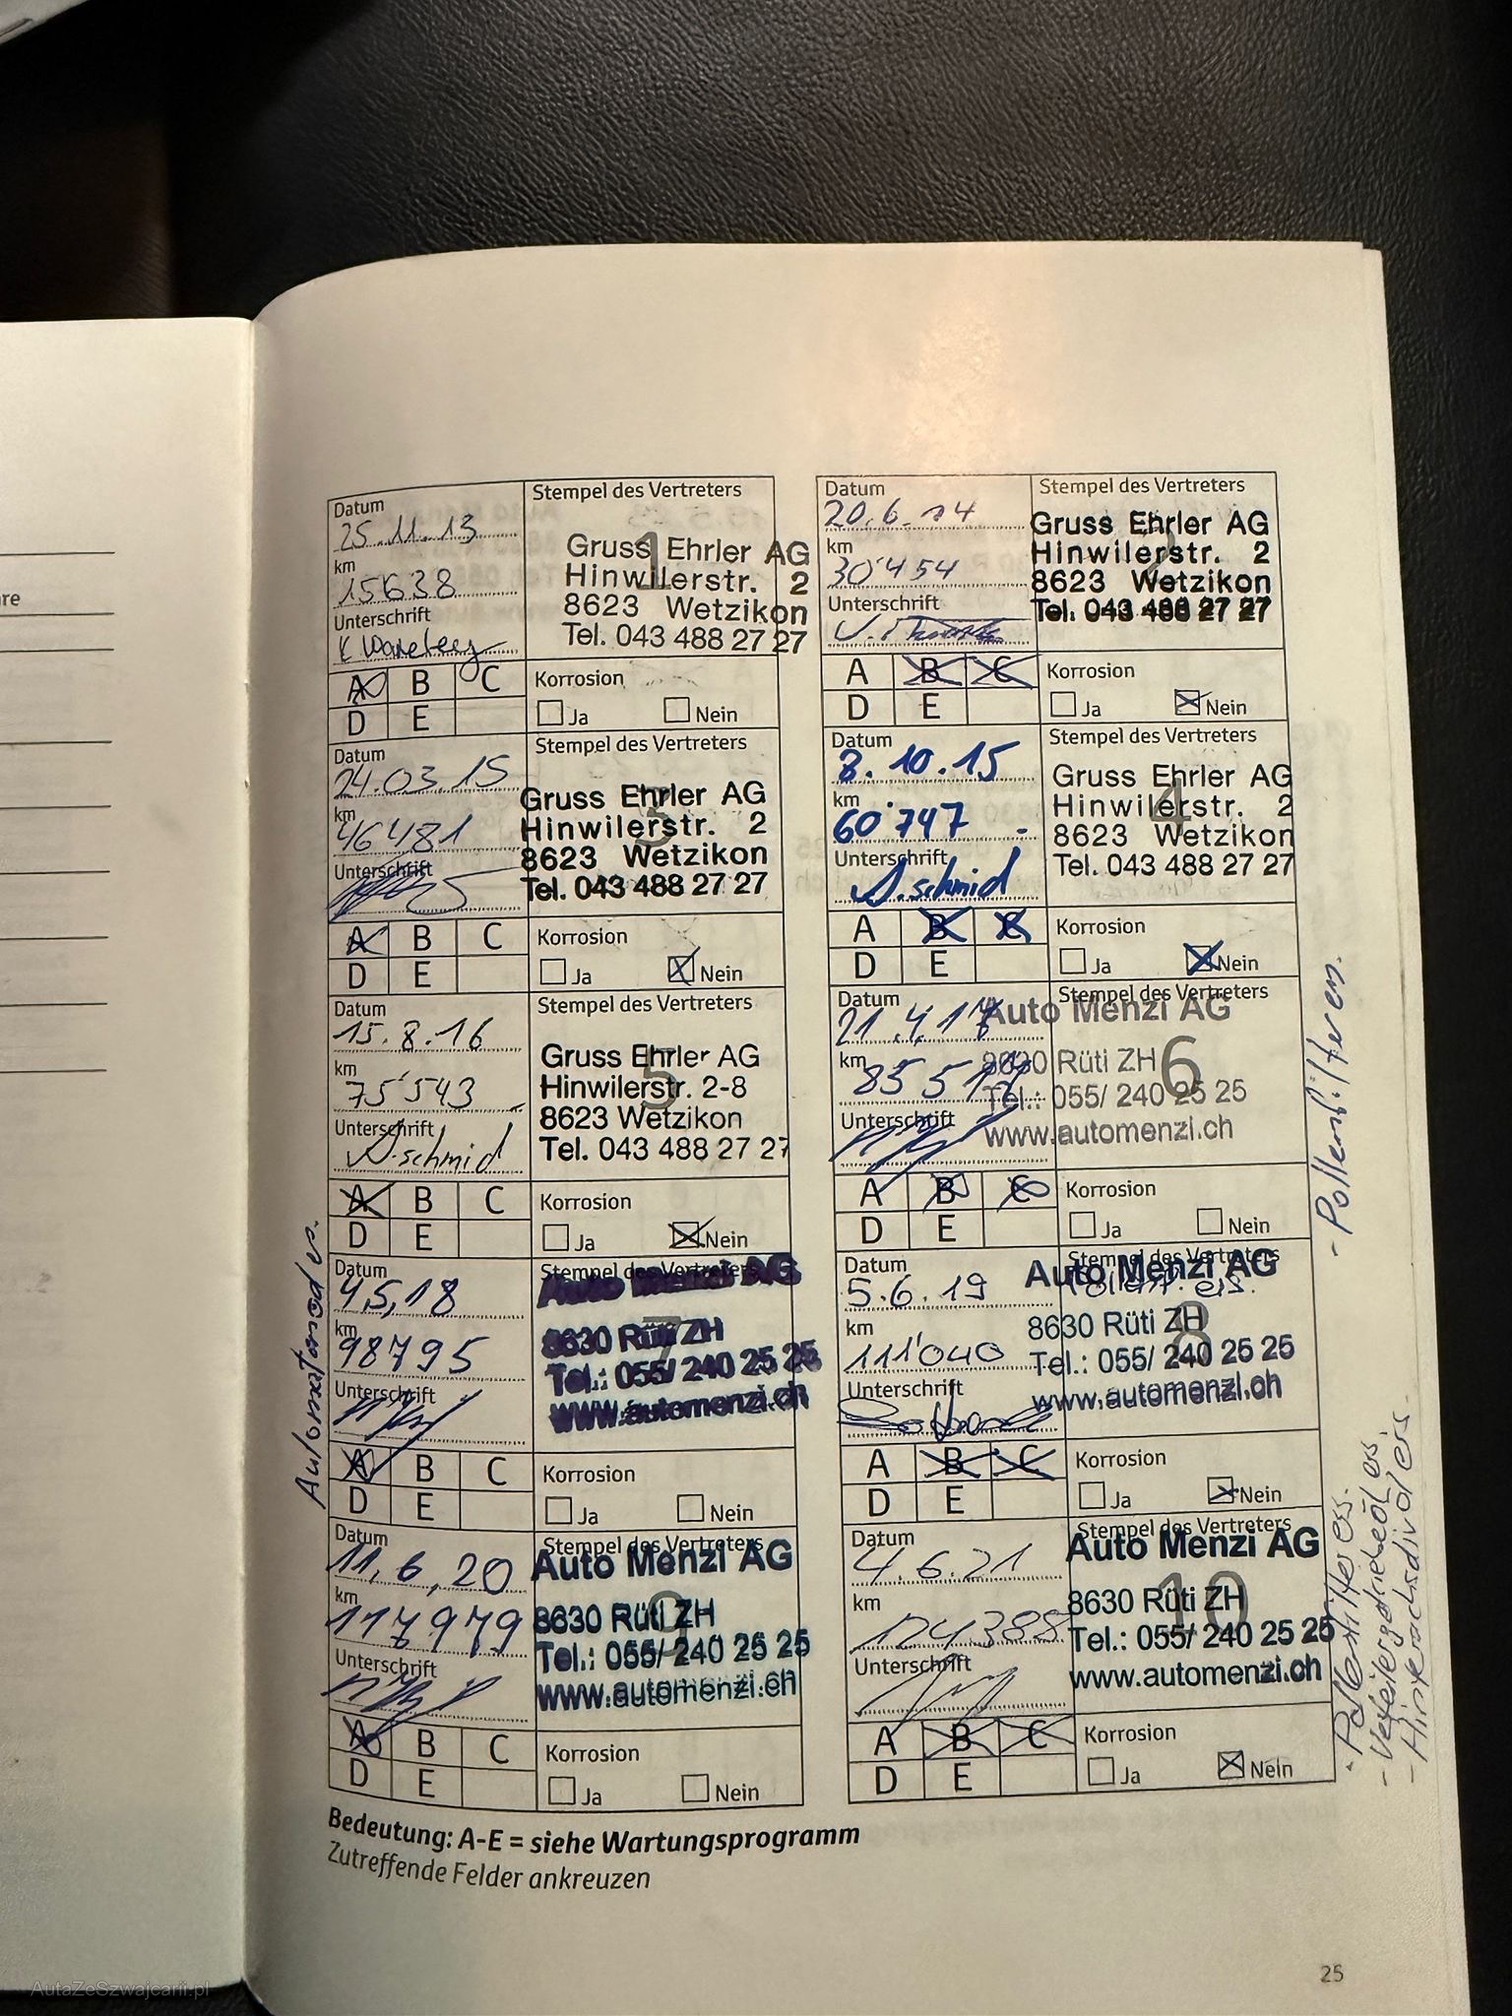 Datum
25.11.13
km
15638
Unterschrift
Stempel des Vertreters
1
Gruss Ehrler AG
Hinwilerstr. 2
8623 Wetzikon
Tel. 043 488 27 27
A B C
D E
Korrosion
Ja Nein
Datum
20.6.14
km
30'454
Unterschrift
Stempel des Vertreters
Gruss Ehrler AG
Hinwilerstr. 2
8623 Wetzikon
Tel. 043 488 27 27
A B C
D E
Korrosion
Ja Nein
Datum
24.03.15
km
46481
Unterschrift
Stempel des Vertreters
3
Gruss Ehrler AG
Hinwilerstr. 2
8623 Wetzikon
Tel. 043 488 27 27
A B C
D E
Korrosion
Ja Nein
Datum
8.10.15
km
60'747
Unterschrift
A.schmid
Stempel des Vertreters
4
Gruss Ehrler AG
Hinwilerstr. 2
8623 Wetzikon
Tel. 043 488 27 27
A B C
D E
Korrosion
Ja Nein
Datum
15.8.16
km
75'543
Unterschrift
A.schmid
Stempel des Vertreters
5
Gruss Ehrler AG
Hinwilerstr. 2-8
8623 Wetzikon
Tel. 043 488 27 27
A B C
D E
Korrosion
Ja Nein
Datum
21.4.17
km
Unterschrift
Stempel des Vertreters
6
Auto Menzi AG
8630 Rüti ZH
Tel.: 055/ 240 25 25
www.automenzi.ch
A B C
D E
Korrosion
Ja Nein
- Pollenfilter ern.
Datum
4.5.18
km
98795
Unterschrift
Stempel des Vertreters
7
Auto Menzi AG
8630 Rüti ZH
Tel.: 055/ 240 25 25
www.automenzi.ch
A B C
D E
Korrosion
Ja Nein
Datum
5.6.19
km
111'040
Unterschrift
Stempel des Vertreters
8
Auto Menzi AG
8630 Rüti ZH
Tel.: 055/ 240 25 25
www.automenzi.ch
A B C
D E
Korrosion
Ja Nein
Datum
11.6.20
km
117979
Unterschrift
Stempel des Vertreters
9
Auto Menzi AG
8630 Rüti ZH
Tel.: 055/ 240 25 25
www.automenzi.ch
A B C
D E
Korrosion
Ja Nein
Datum
4.6.21
km
124388
Unterschrift
Stempel des Vertreters
10
Auto Menzi AG
8630 Rüti ZH
Tel.: 055/ 240 25 25
www.automenzi.ch
A B C
D E
Korrosion
Ja Nein
- Pollenfilter ers.
- Verteilergetriebeöl ers.
Bedeutung: A-E = siehe Wartungsprogramm
Zutreffende Felder ankreuzen
25
AutaZeSzwajcarii.pl